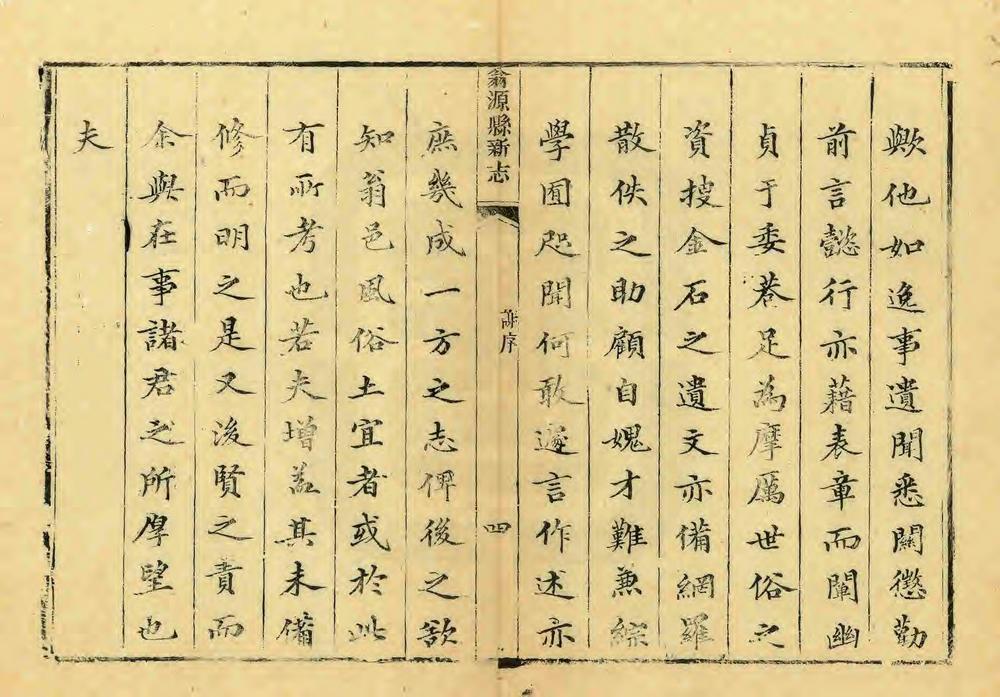 歟他如逸事遺聞悉關懲勸
前言懿行亦藉表章而闡幽
貞于委巷足為摩厲世俗之
資搜金石之遺文亦備網羅
散佚之助顧自媿才難兼綜
學囿咫聞何敢遽言作述亦
翁源縣新志
謝序
四
庶幾成一方之志俾後之欲
知翁邑風俗土宜者或於此
有所考也若夫增益其未備
修而明之是又後賢之責而
余與在事諸君之所厚望也
夫